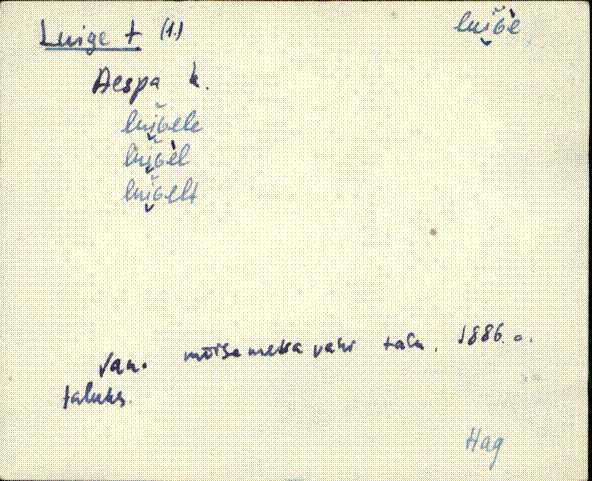 Luige t (1.) lui̯ǧè
Aespa k.
lui̯ǧele
lui̯ǧèl
lui̯ǧelt
Van. mõisa metsavahi talu. 1886. a.
taluks.
Hag